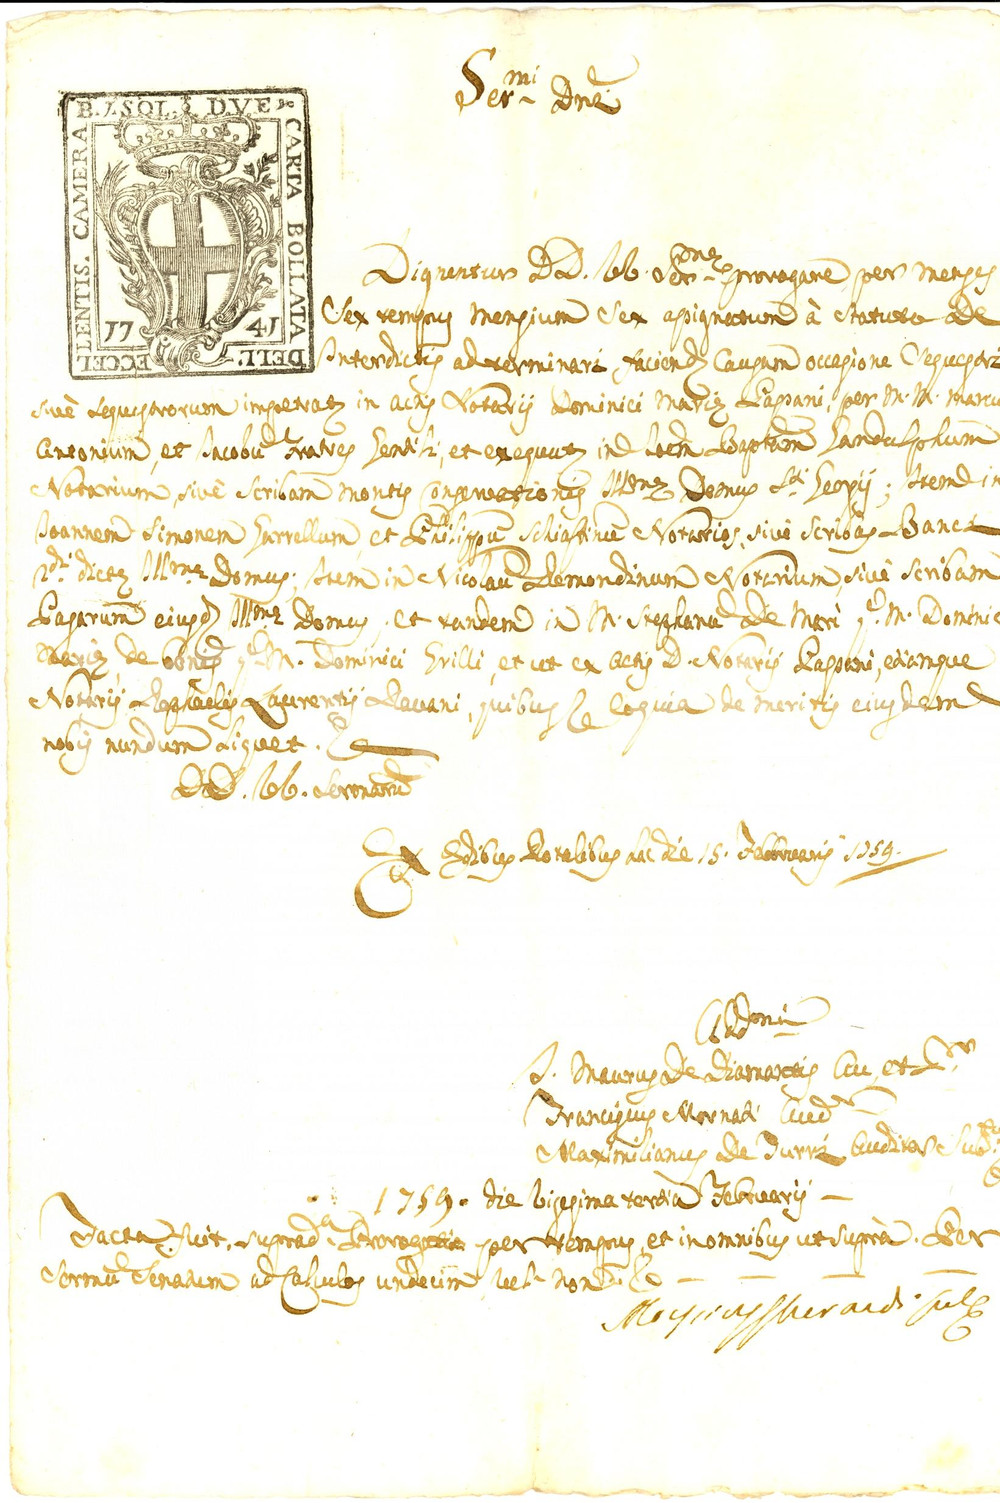 B. 7. SOL. DVE
CARTA BOLLATA
DELL'
ECCEL
LENTIS. CAMERA
17 41
Ser.mi Dni
Dignentur DD. VV. Ser.me prorogare per menses
Sex tempus mensium sex assignatum à Statuto de
Interdictis ad terminari faciend causam occasione Sequestri
sivè sequestrorum impetrat in actis Notarij Dominici Mariæ Passani, per M. M. Marcu
Antonium, et Jacobu fratres Gentili, et exequut in d Joem Baptam Gandulphum
Notarium, sivè Scribam montis Conservationis Ill.mæ Domus S.ti Georgij; Item in
Joannem Simonem Garrellum, et Philippu Schiaffinu Notarios, sivè Scribas Banci
dictæ Ill.mæ Domus; Item in Nicolau Demondinum Notarium, sivè Scribam
Pagarum eiusd Ill.mæ Domus, et tandem in M. Stephanu de Mari q. M. Dominici
Mariæ de q. M. Dominici Grilli, et ut ex actis D. Notarij Passani, ediamque
Notarij Raphaelis Laurentij Pavani, quibus &c eoquia de meritis eiusdem
nobis nundum liquet. &c
DD. VV. Ser.
Ex Edibus Rotalibus hac die 15. Februarij 1759.
Add.mi
J. Maurus de Diamantis Au. et
Franciscus Mornadi Aud.r
Maximilianus de Turri Auditor
1759. die vigesima tertia Februarij
Facta fuit suprad.a Prorogatio per tempus, et in omnibus ut suprà. Per
Sermu Senatum ad Calculos undecim, &c